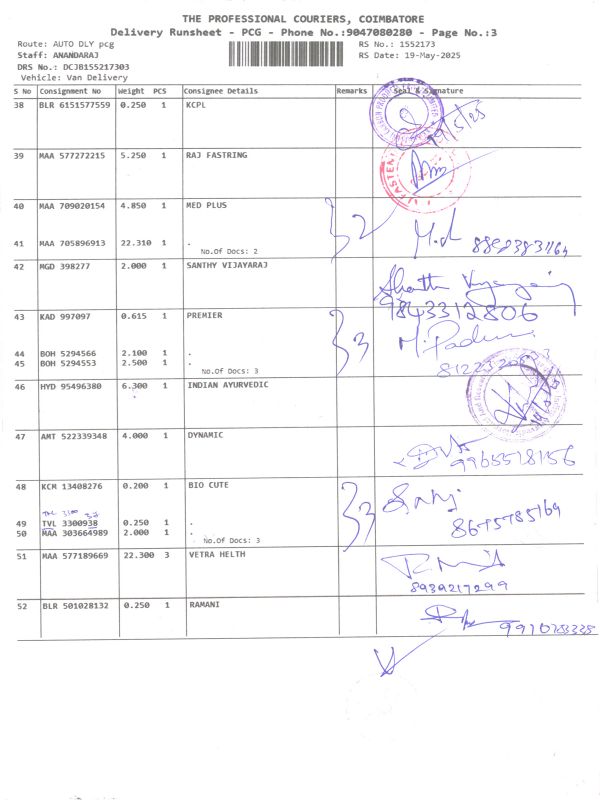 THE PROFESSIONAL COURIERS, COIMBATORE
Delivery Runsheet - PCG - Phone No.:9047080280 - Page No.:3
Route: AUTO DLY pcg RS No.: 1552173
Staff: ANANDARAJ RS Date: 19-May-2025
DRS No.: DCJB155217303
Vehicle: Van Delivery
S No Consignment No Weight PCS Consignee Details Remarks Seal & Signature
38 BLR 6151577559 0.250 1 KCPL
39 MAA 577272215 5.250 1 RAJ FASTRING
40 MAA 709020154 4.850 1 MED PLUS
2
41 MAA 705896913 22.310 1 .
No.Of Docs: 2
42 MGD 398277 2.000 1 SANTHY VIJAYARAJ
9843312806
43 KAD 997097 0.615 1 PREMIER
3
44 BOH 5294566 2.100 1 .
45 BOH 5294553 2.500 1 .
No.Of Docs: 3
46 HYD 95496380 6.300 1 INDIAN AYURVEDIC
47 AMT 522339348 4.000 1 DYNAMIC
9965518156
48 KCM 13408276 0.200 1 BIO CUTE
3
49 TVL 3300938 0.250 1 .
50 MAA 303664989 2.000 1 .
No.Of Docs: 3
51 MAA 577189669 22.300 3 VETRA HELTH
8939217299
52 BLR 501028132 0.250 1 RAMANI